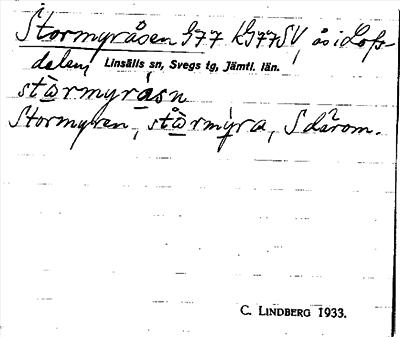 Stormyråsen G77 kG77SV, ås i Lofs-
dalen, Linsälls sn, Svegs tg, Jämtl. län.
stwrmyråsn
Stormyren, stwrmyra, S därom.
C. LINDBERG 1933.